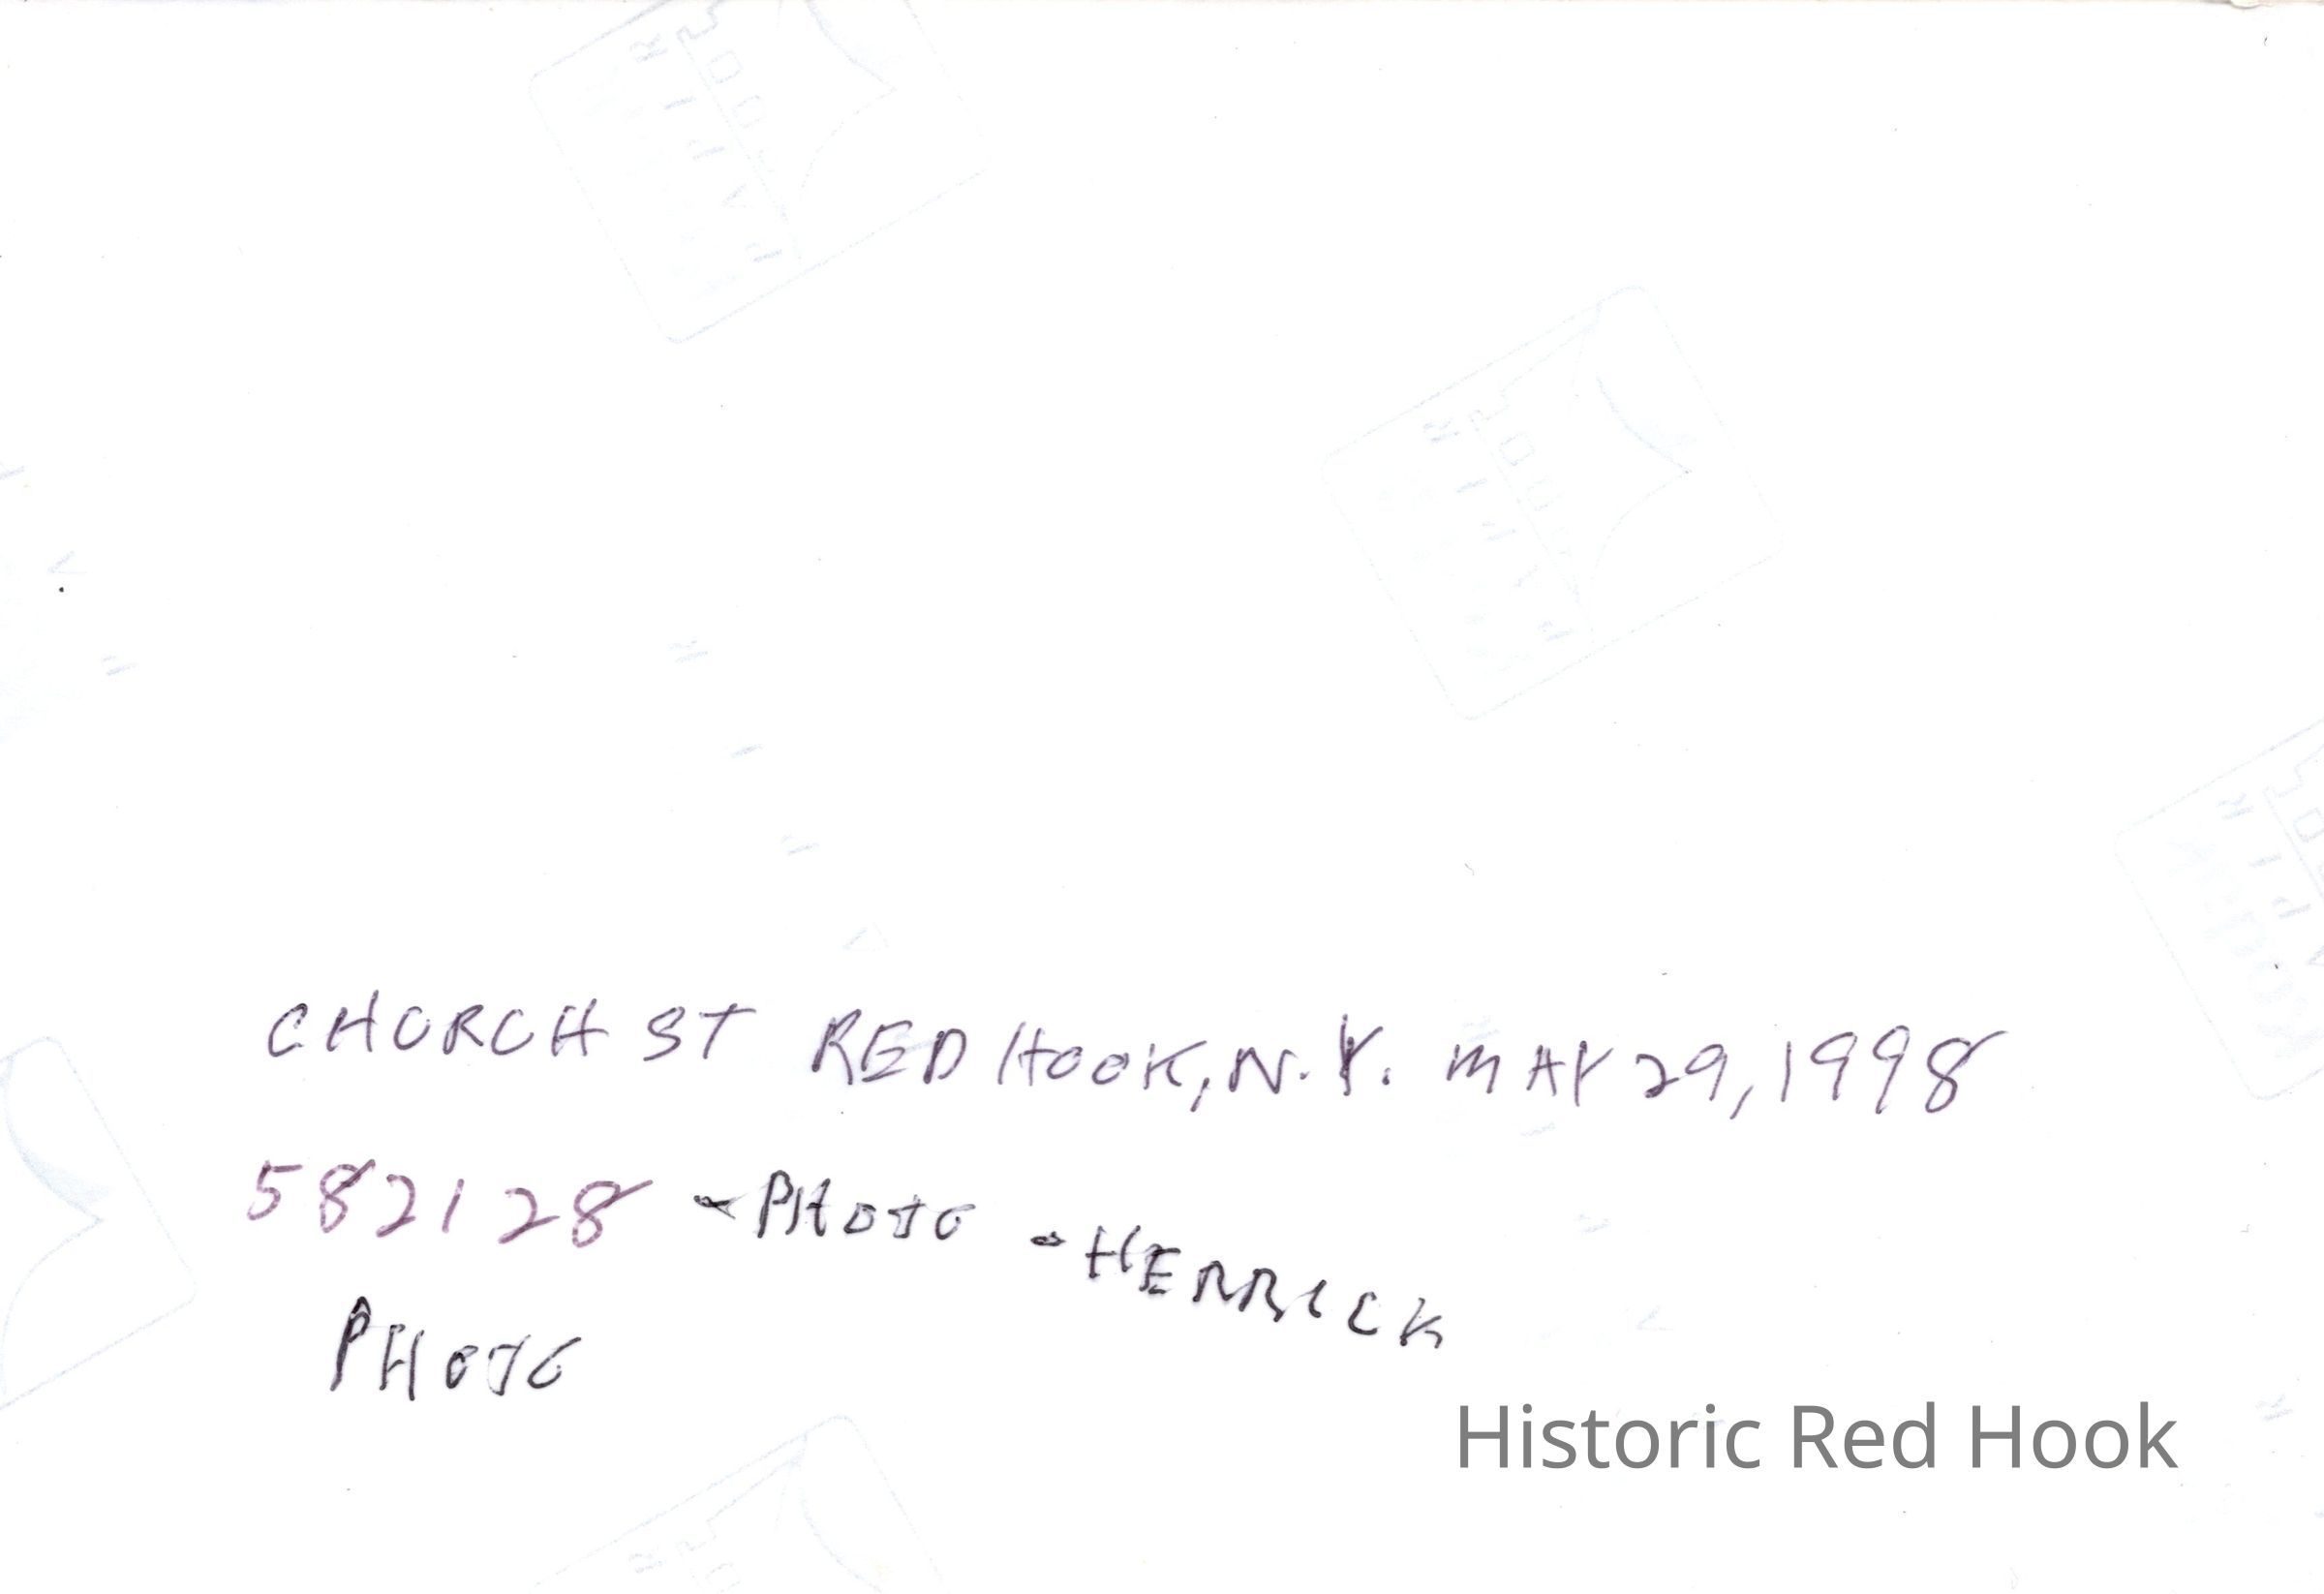 CHURCH ST RED HOOK, N.Y. MAY 29, 1998
582128 - PHOTO - HERRICK
PHOTO
Historic Red Hook